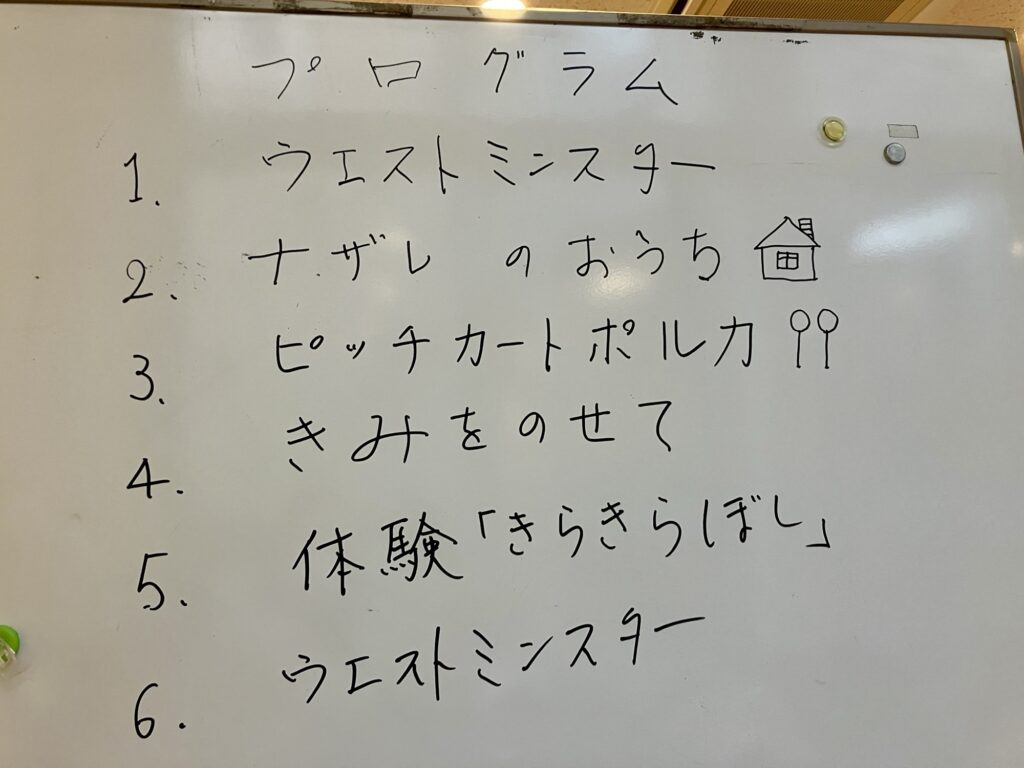 プログラム
1. ウエストミンスター
2. ナザレのおうち
3. ピッチカートポルカ
4. きみをのせて
5. 体験「きらきらぼし」
6. ウエストミンスター